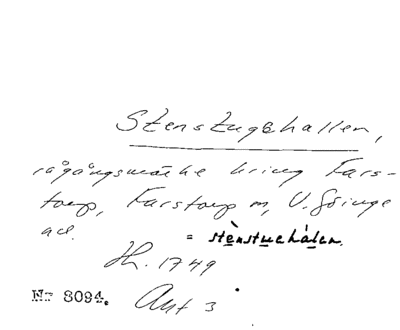 Stenstugehallen,
rågångsmärke kring Fars-
torp, Farstorp sn, V. Göinge
hd.
= stènstuehálen.
Jh. 1749
Nr 8094. Akt 3